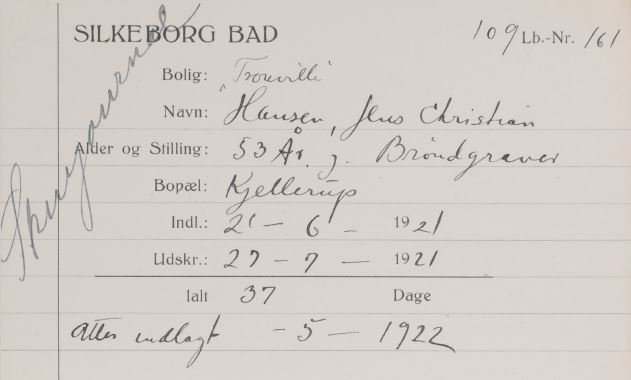 SILKEBORG BAD 109 Lb.-Nr. 161
Bolig: "Trouville"
Navn: Hansen, Jens Christian
Alder og Stilling: 53 År. g. Brøndgraver
Bopæl: Kjellerup
Indl.: 21 – 6 – 1921
Udskr.: 27 – 7 – 1921
Ialt 37 Dage
Atter indlagt – 5 – 1922